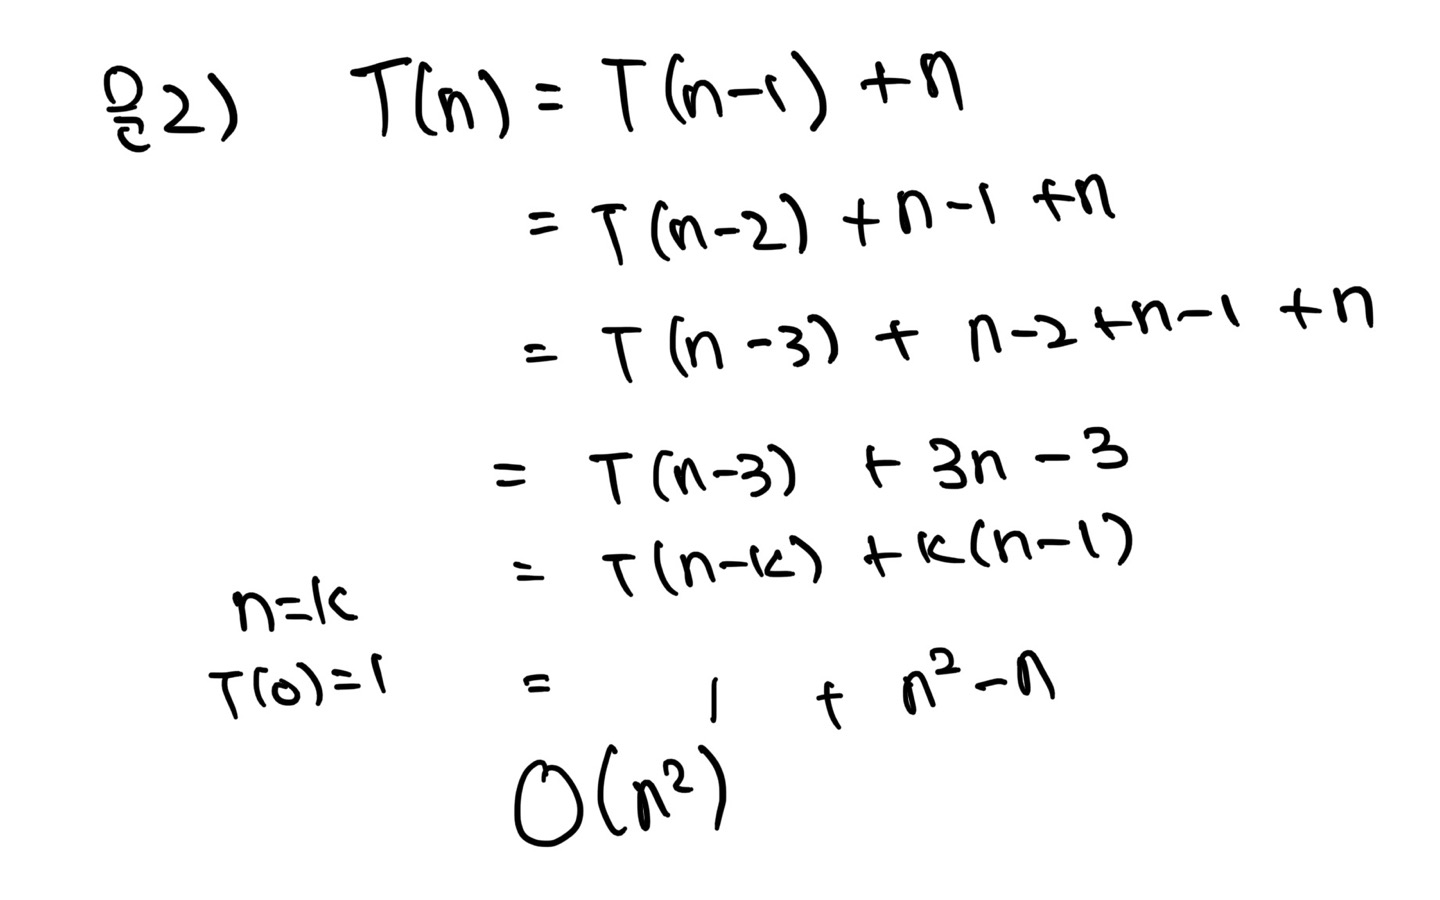 문2) T(n) = T(n-1) +n
= T(n-2) +n-1 +n
= T(n-3) + n-2+n-1 +n
= T(n-3) + 3n-3
= T(n-k) +k(n-1)
n=k
T(0)=1 = 1 + n²-n
O(n²)